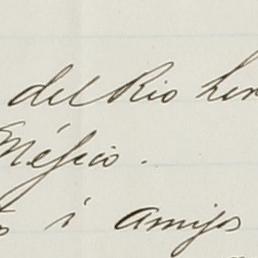 del Rio
Méjico.
i amigos